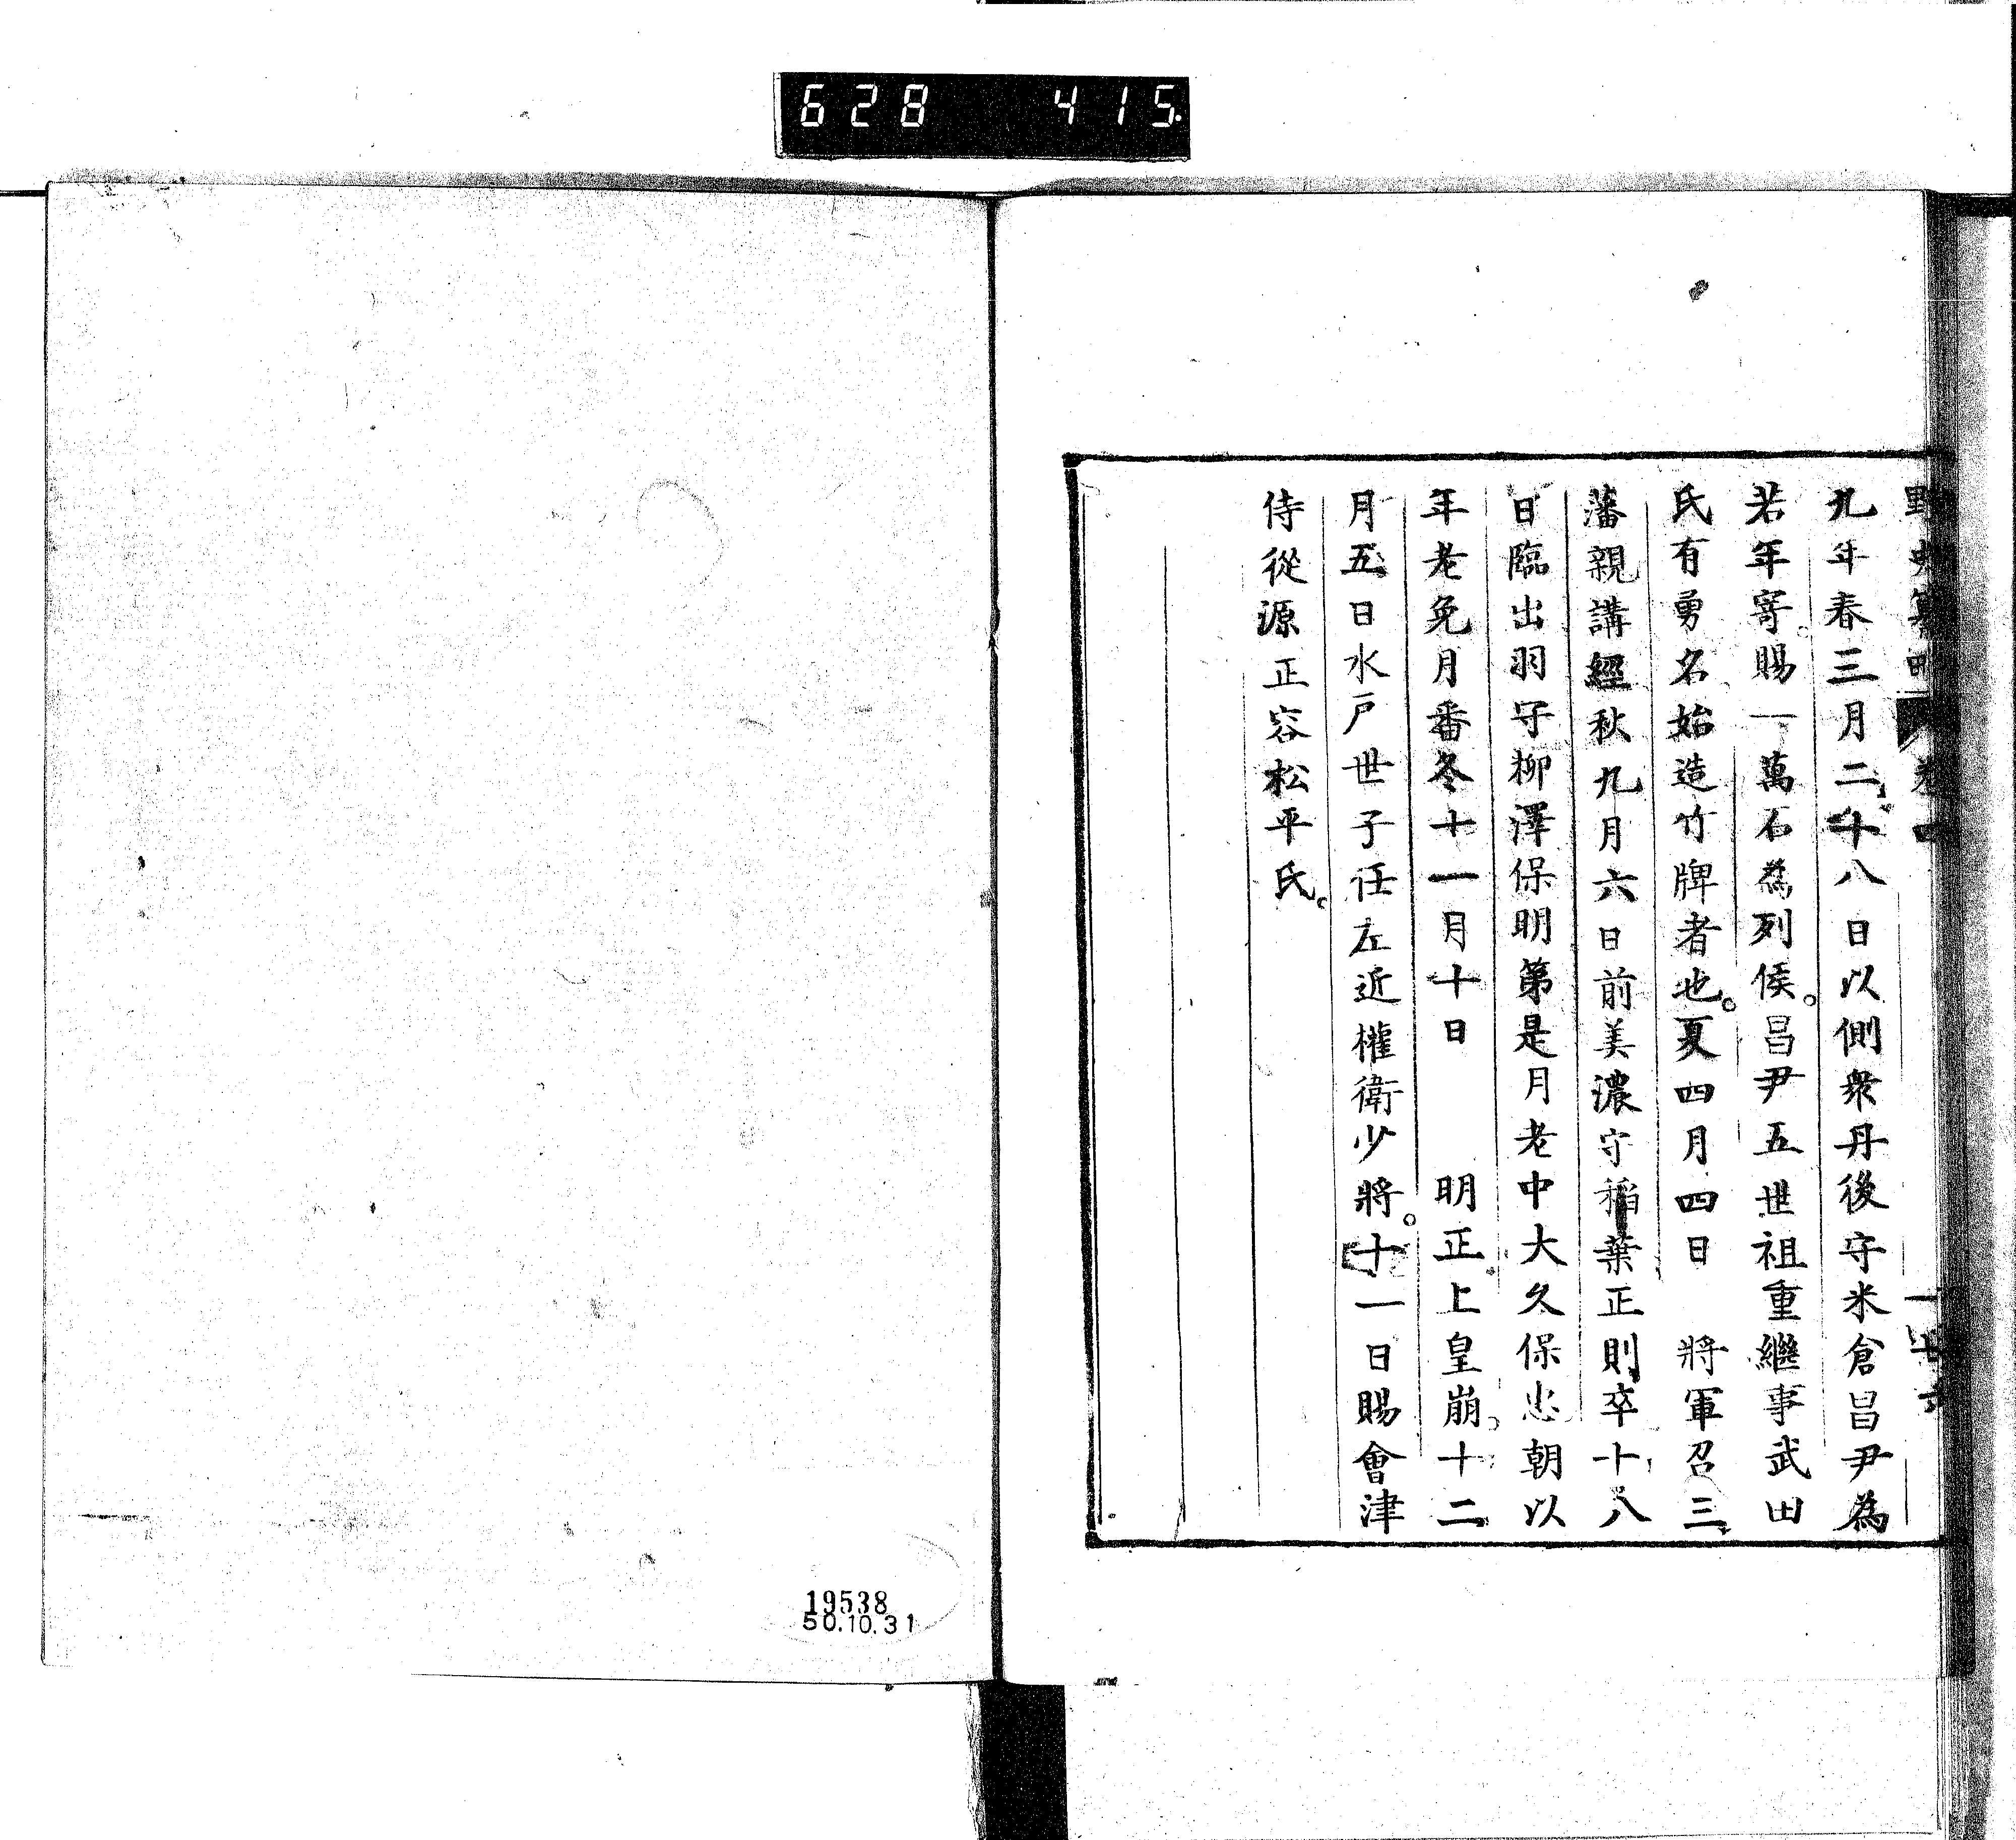 628 415.
野史纂略 卷四
九年春三月二十八日以側衆丹後守米倉昌尹為
若年寄。賜一萬石為列侯。昌尹五世祖重繼事武田
氏有勇名始造竹牌者也。夏四月四日 將軍召三
藩親講經秋九月六日前美濃守稲葉正則卒十八
日臨出羽守柳澤保明第是月老中大久保忠朝以
年老免月番冬十一月十日 明正上皇崩。十二
月五日水戸世子任左近權衛少將。十一日賜會津
侍從源正容松平氏。
19538
50.10.31